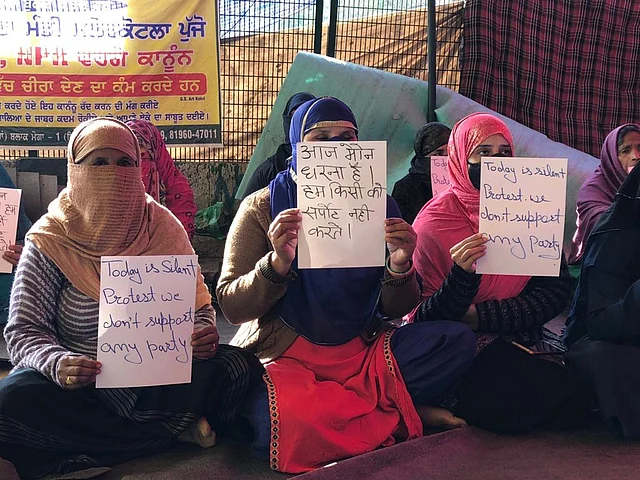 ਦਾ ਮੰਡੀ ਮਲੇਰਕੋਟਲਾ ਪੁੱਜੋ
ਵਰਗੇ ਕਾਨੂੰਨ
ਚੀਰਾ ਦੇਣ ਦਾ ਕੰਮ ਕਰਦੇ ਹਨ
G.S. Art Kokri
ਕਰਦੇ ਹੋਏ ਇਹ ਕਾਨੂੰਨ ਰੱਦ ਕਰਨ ਦੀ ਮੰਗ ਕਰੀਏ
ਦੇ ਜਾਬਰ ਕਦਮ ਰੋਕੀਏ
ਏਕੇ ਦਾ ਸਾਬੂਤ ਦਈਏ।
ਬਲਾਕ ਮੋਗਾ - 1
81960-47011
Today is Silent
Protest we
don't support
any party
आज मौन
धरना है।
हम किसी को
सपोर्ट नही
करते।
Today is silent
Protest. we
don't support
any party